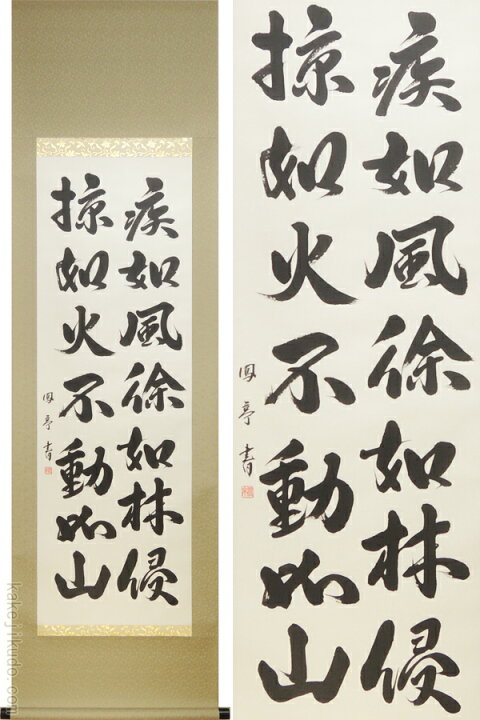 疾如風徐如林侵
掠如火不動如山
鳳亭書
疾如風徐如林侵
掠如火不動如山
鳳亭書
kakejikudo.com